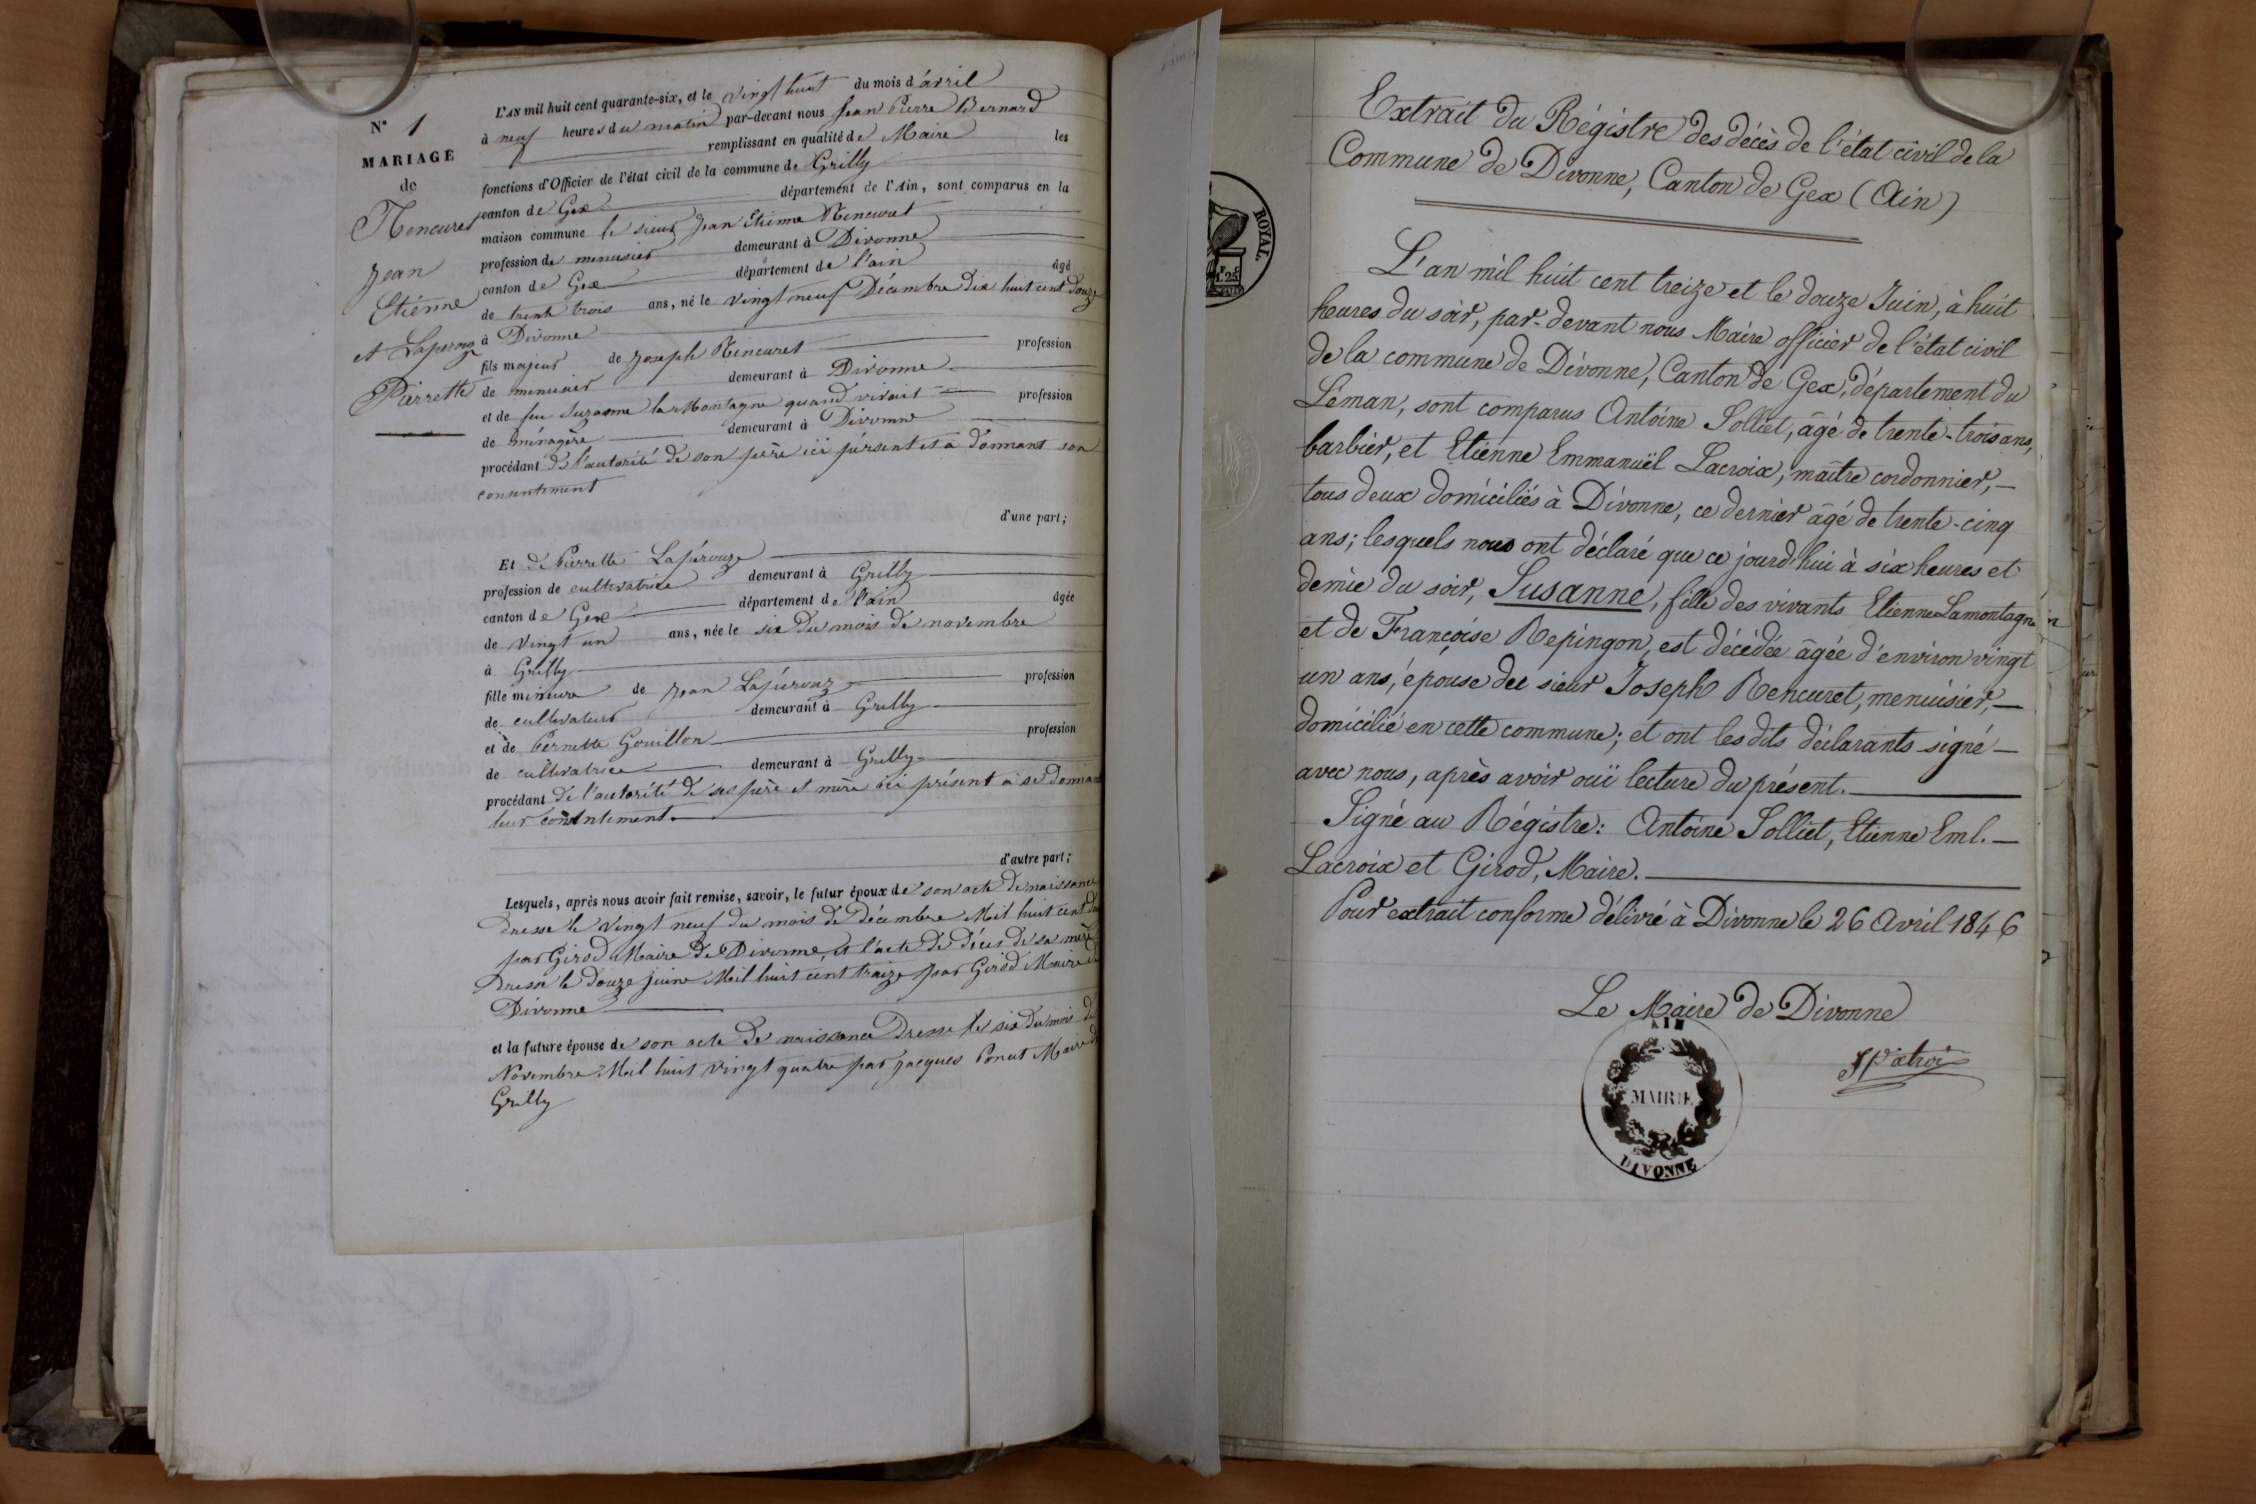 N° 1
MARIAGE
de
Rencuret
Jean
Etienne
et Laperouz
Pierrette
L'AN mil huit cent quarante-six, et le vingt huit du mois d'avril
à neuf heures du matin par-devant nous Jean Pierre Bernard
remplissant en qualité de Maire les
fonctions d'Officier de l'état civil de la commune de Grilly
canton de Gex département de l'Ain, sont comparus en la
maison commune le sieur Jean Etienne Rencuret
profession de menusier demeurant à Divonne
canton de Gex département de l'ain âgé
de trente trois ans, né le vingt neuf Décembre dix huit cent douze
à Divonne
fils majeur de Joseph Rencuret profession
de menusier demeurant à Divonne
et de feu Suzanne la Montagne quand vivait profession
de ménagère demeurant à Divonne
procédant de l'autorité de son père ici présent et a donnant son
consentement
d'une part;
Et de Pierrette Lapérouze
profession de cultivatrice demeurant à Grilly
canton de Gex département de l'ain âgée
de vingt un ans, née le six du mois de novembre
à Grilly
fille mineure de Jean Lapérouz profession
de cultivateur demeurant à Grilly
et de Pernette Gouillon profession
de cultivatrice demeurant à Grilly
procédant de l'autorité de ses père et mère ici présent a se donnant
leur consentement
d'autre part;
Lesquels, après nous avoir fait remise, savoir, le futur époux de son acte de naissance
dresse le vingt neuf du mois de décembre Mil huit cent
par Girod Maire de Divonne, et l'acte de décès de sa mère
Dressé le douze juine Mil huit cent traize par Girod Maire de
Divonne
et la future épouse de son acte de naissance Dresse le six du mois de
Novembre Mil huit vingt quatre par jacques Ponet Maire de
Grilly
ROYAL.
1.25
Extrait du Régistre des décès de l'état civil de la
Commune de Divonne, Canton de Gex (Ain)
L'an mil huit cent treize et le douze Juin, à huit
heures du soir, par-devant nous Maire officier de l'état civil
de la commune de Divonne, Canton de Gex, département du
Léman, sont comparus Antoine Solliet, âgé de trente-trois ans,
barbier, et Etienne Emmanuël Lacroix, maître cordonnier,
tous deux domiciliés à Divonne, ce dernier âgé de trente-cinq
ans; lesquels nous ont déclaré que ce jourd'hui à six heures et
demie du soir, Susanne, fille des vivants Etienne Lamontagne
et de Françoise Repingon, est décédée âgée d'environ vingt
un ans, épouse du sieur Joseph Rencuret, menuisier,
domicilié en cette commune; et ont les dits déclarants signé
avec nous, après avoir ouï lecture du présent.
Signé au Régistre: Antoine Solliet, Etienne Eml.
Lacroix et Girod, Maire.
Pour extrait conforme délivré à Divonne le 26 Avril 1846
Le Maire de Divonne
AIN
MAIRIE
DIVONNE